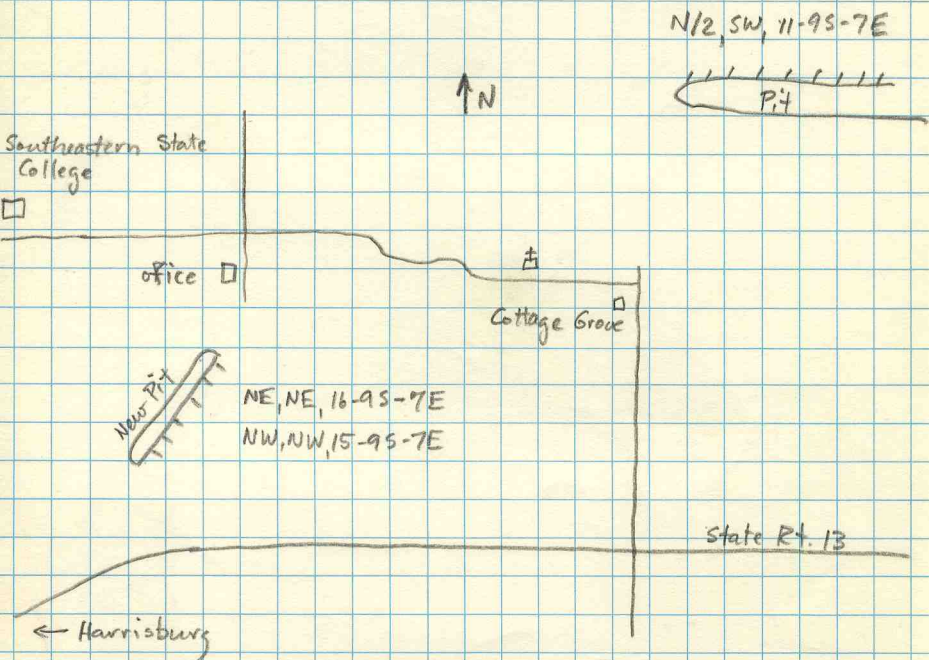 N/2, SW, 11-9S-7E
Pit
N
Southeastern State
College
office
Cottage Grove
New Pit
NE, NE, 16-9S-7E
NW, NW, 15-9S-7E
State Rt. 13
← Harrisburg